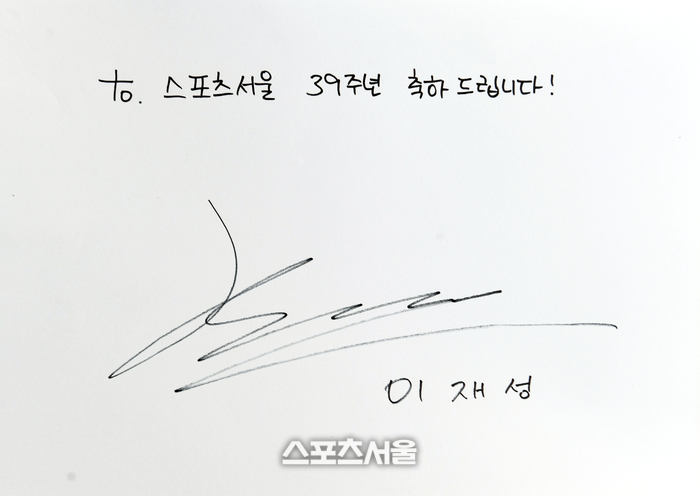 to. 스포츠서울 39주년 축하 드립니다!
이 재 성
스포츠서울